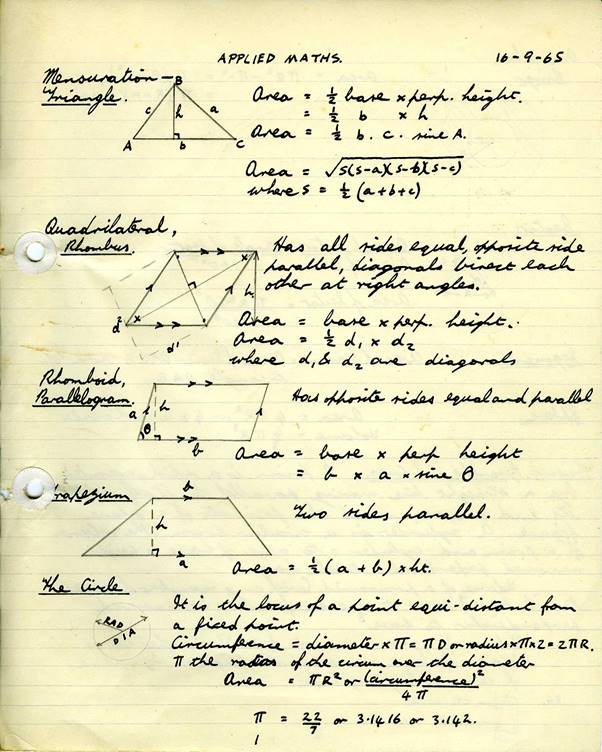 APPLIED MATHS. 16-9-65
Mensuration —
Triangle.
B
c h a
A b C
Area = ½ base x perp. height.
= ½ b x h
Area = ½ b. c. sine A.
Area = √s(s-a)(s-b)(s-c)
where s = ½ (a+b+c)
Quadrilateral,
Rhombus.
x
h
d² x
d'
Has all sides equal, opposite side
parallel, diagonals bisect each
other at right angles.
Area = base x perp. height.
Area = ½ d₁ x d₂
where d₁ & d₂ are diagonals
Rhomboid,
Parallelogram.
a h
θ
b
Has opposite sides equal and parallel
Area = base x perp height
= b x a x sine θ
Trapezium
b
h
a
Two sides parallel.
Area = ½ (a + b) x ht.
The Circle
RAD
DIA
It is the locus of a point equi-distant from
a fixed point.
Circumference = diameter x π = π D or radius x π x 2 = 2πR.
π the radias of the circum over the diameter
Area = πR² or (circumference)²/4π
π = 22/7 or 3.1416 or 3.142.
1